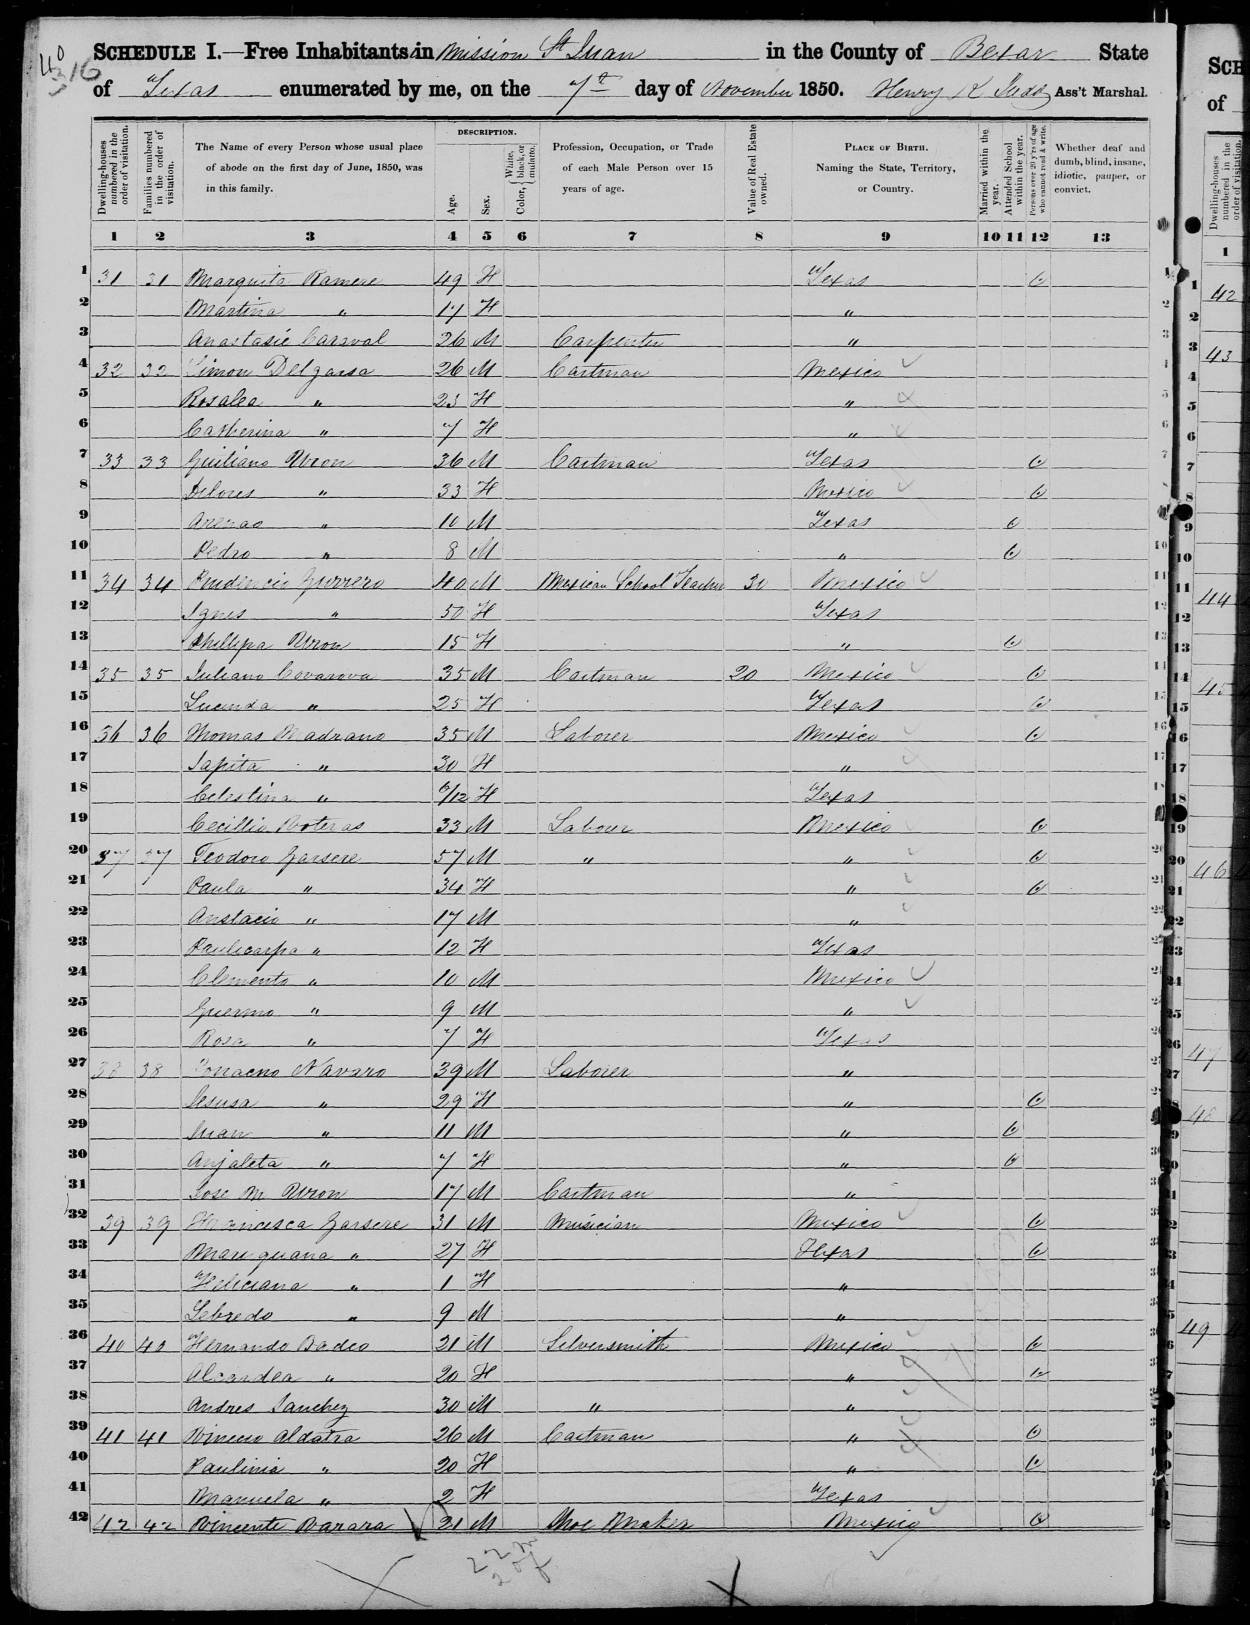 40
316
SCHEDULE I.—Free Inhabitants in Mission St Juan in the County of Bexar State
of Texas enumerated by me, on the 7th day of November 1850. Henry K Judd Ass't Marshal.
Dwelling-houses numbered in the order of visitation. Families numbered in the order of visitation. The Name of every Person whose usual place of abode on the first day of June, 1850, was in this family. DESCRIPTION. Age. Sex. Color, White, black, or mulatto. Profession, Occupation, or Trade of each Male Person over 15 years of age. Value of Real Estate owned. PLACE OF BIRTH. Naming the State, Territory, or Country. Married within the year. Attended School within the year. Persons over 20 y'rs of age who cannot read & write. Whether deaf and dumb, blind, insane, idiotic, pauper, or convict.
1 2 3 4 5 6 7 8 9 10 11 12 13
1 31 31 Marguita Ramere 49 F Texas
2 Martina " 17 F "
3 Anastasie Caraval 26 M Carpenter "
4 32 32 Simon Delgarsa 26 M Cartman Mexico
5 Rosalea " 23 F "
6 Catherina " 7 F "
7 33 33 Guiliano 36 M Cartman Texas
8 Delores " 33 F Mexico
9 " 10 M Texas
10 Pedro " 8 M "
11 34 34 Prudencio Gurrero 40 M Mexican School Teacher 30 Mexico
12 Ignes " 50 F Texas
13 Phillipa 15 F "
14 35 35 Juliano Covarova 35 M Cartman 20 Mexico
15 Lucinda " 25 F Texas
16 36 36 Thomas Madrano 35 M Laborer Mexico
17 Sapita " 30 F "
18 Celestina " 6/12 F Texas
19 Cecillio 33 M Laborer Mexico
20 37 37 Teodoro Garsere 57 M " "
21 Paula " 34 F "
22 Anstacio " 17 M "
23 Paulicarpa " 12 F Texas
24 Clemento " 10 M Mexico
25 Guermo " 9 M "
26 Rosa " 7 F Texas
27 38 38 Navaro 39 M Laborer "
28 Jesusa " 29 F "
29 Juan " 11 M "
30 Anjaleta " 7 F "
31 Jose M 17 M Cartman "
32 39 39 Francisca Garsere 31 M Musician Mexico
33 Mariquana " 27 F Texas
34 Feliciana " 1 F "
35 Lebredo " 9 M "
36 40 40 Hernando Badeo 21 M Silversmith Mexico
37 Alcardea " 20 F "
38 Andres Sanchez 30 M " "
39 41 41 Aldatra 26 M Cartman "
40 Paulinia " 20 F "
41 Manuela " 2 F Texas
42 42 42 Vincente Barara 21 M Shoe Maker Mexico
22 m
20 f
SCH
of
Dwelling-houses numbered in the order of visitation.
1
42
43
44
45
46
47
48
49